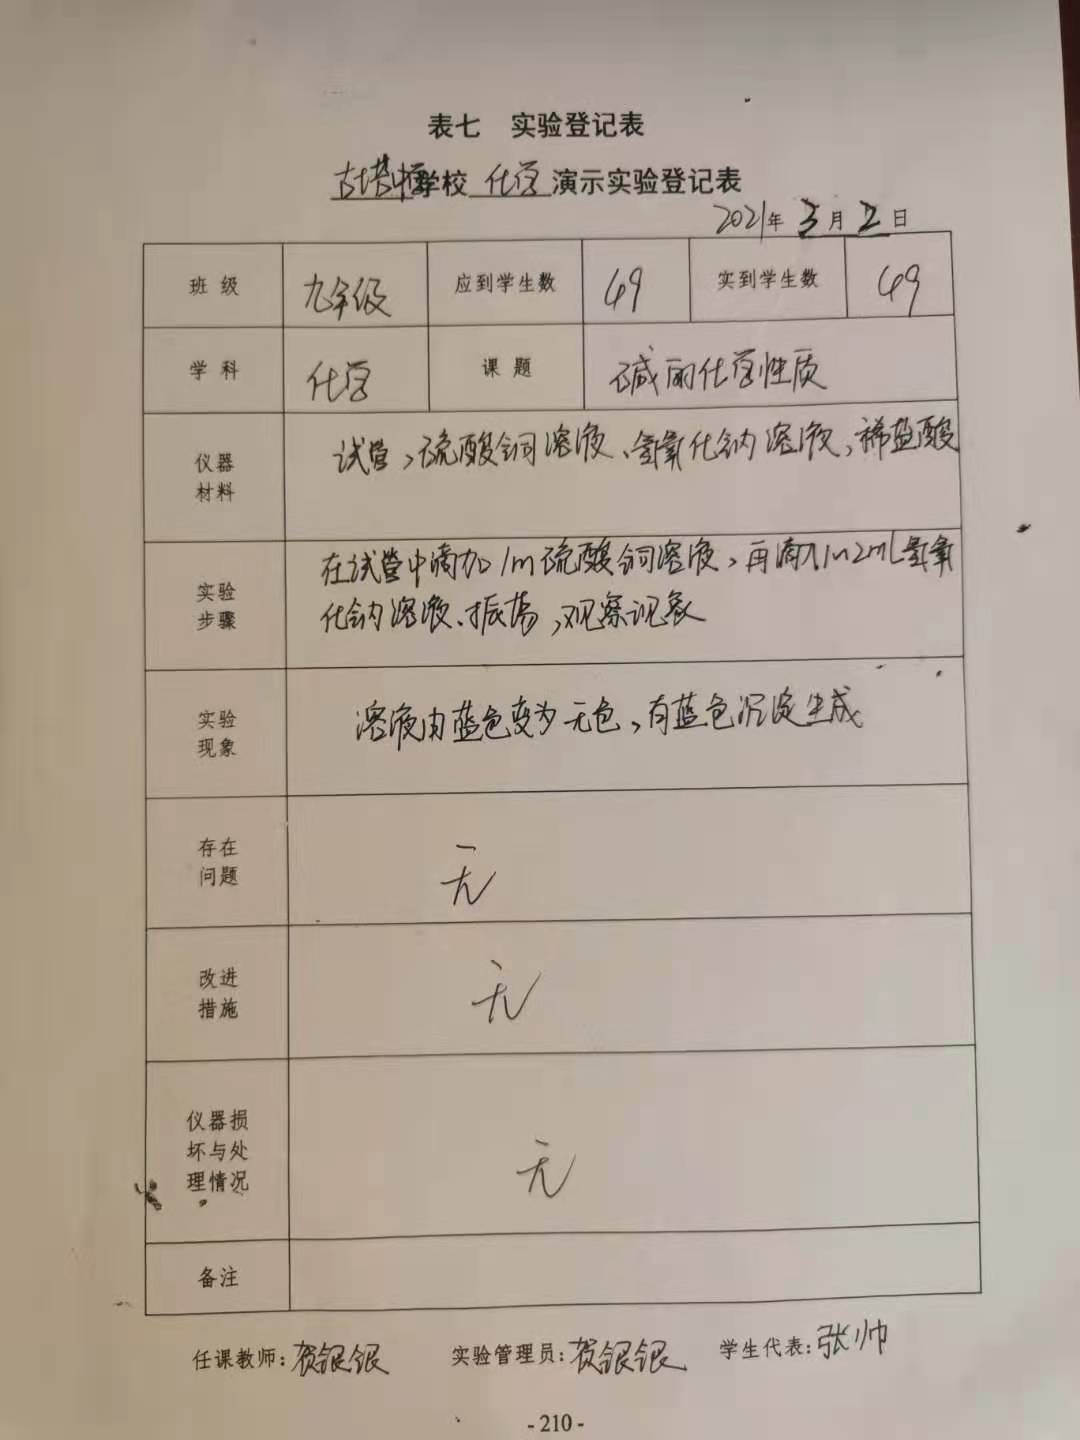 表七 实验登记表
古塔中学校 化学 演示实验登记表
2021年 3月 2日
班级 九年级 应到学生数 49 实到学生数 49
学科 化学 课题 碱的化学性质
仪器材料 试管、硫酸铜溶液、氢氧化钠溶液、稀盐酸
实验步骤 在试管中滴加1m硫酸铜溶液，再滴入1n2mL氢氧
化钠溶液、振荡，观察现象
实验现象 溶液由蓝色变为无色，有蓝色沉淀生成
存在问题 无
改进措施 无
仪器损坏与处理情况 无
备注
任课教师：贺银银 实验管理员：贺银银 学生代表：张帅
- 210 -